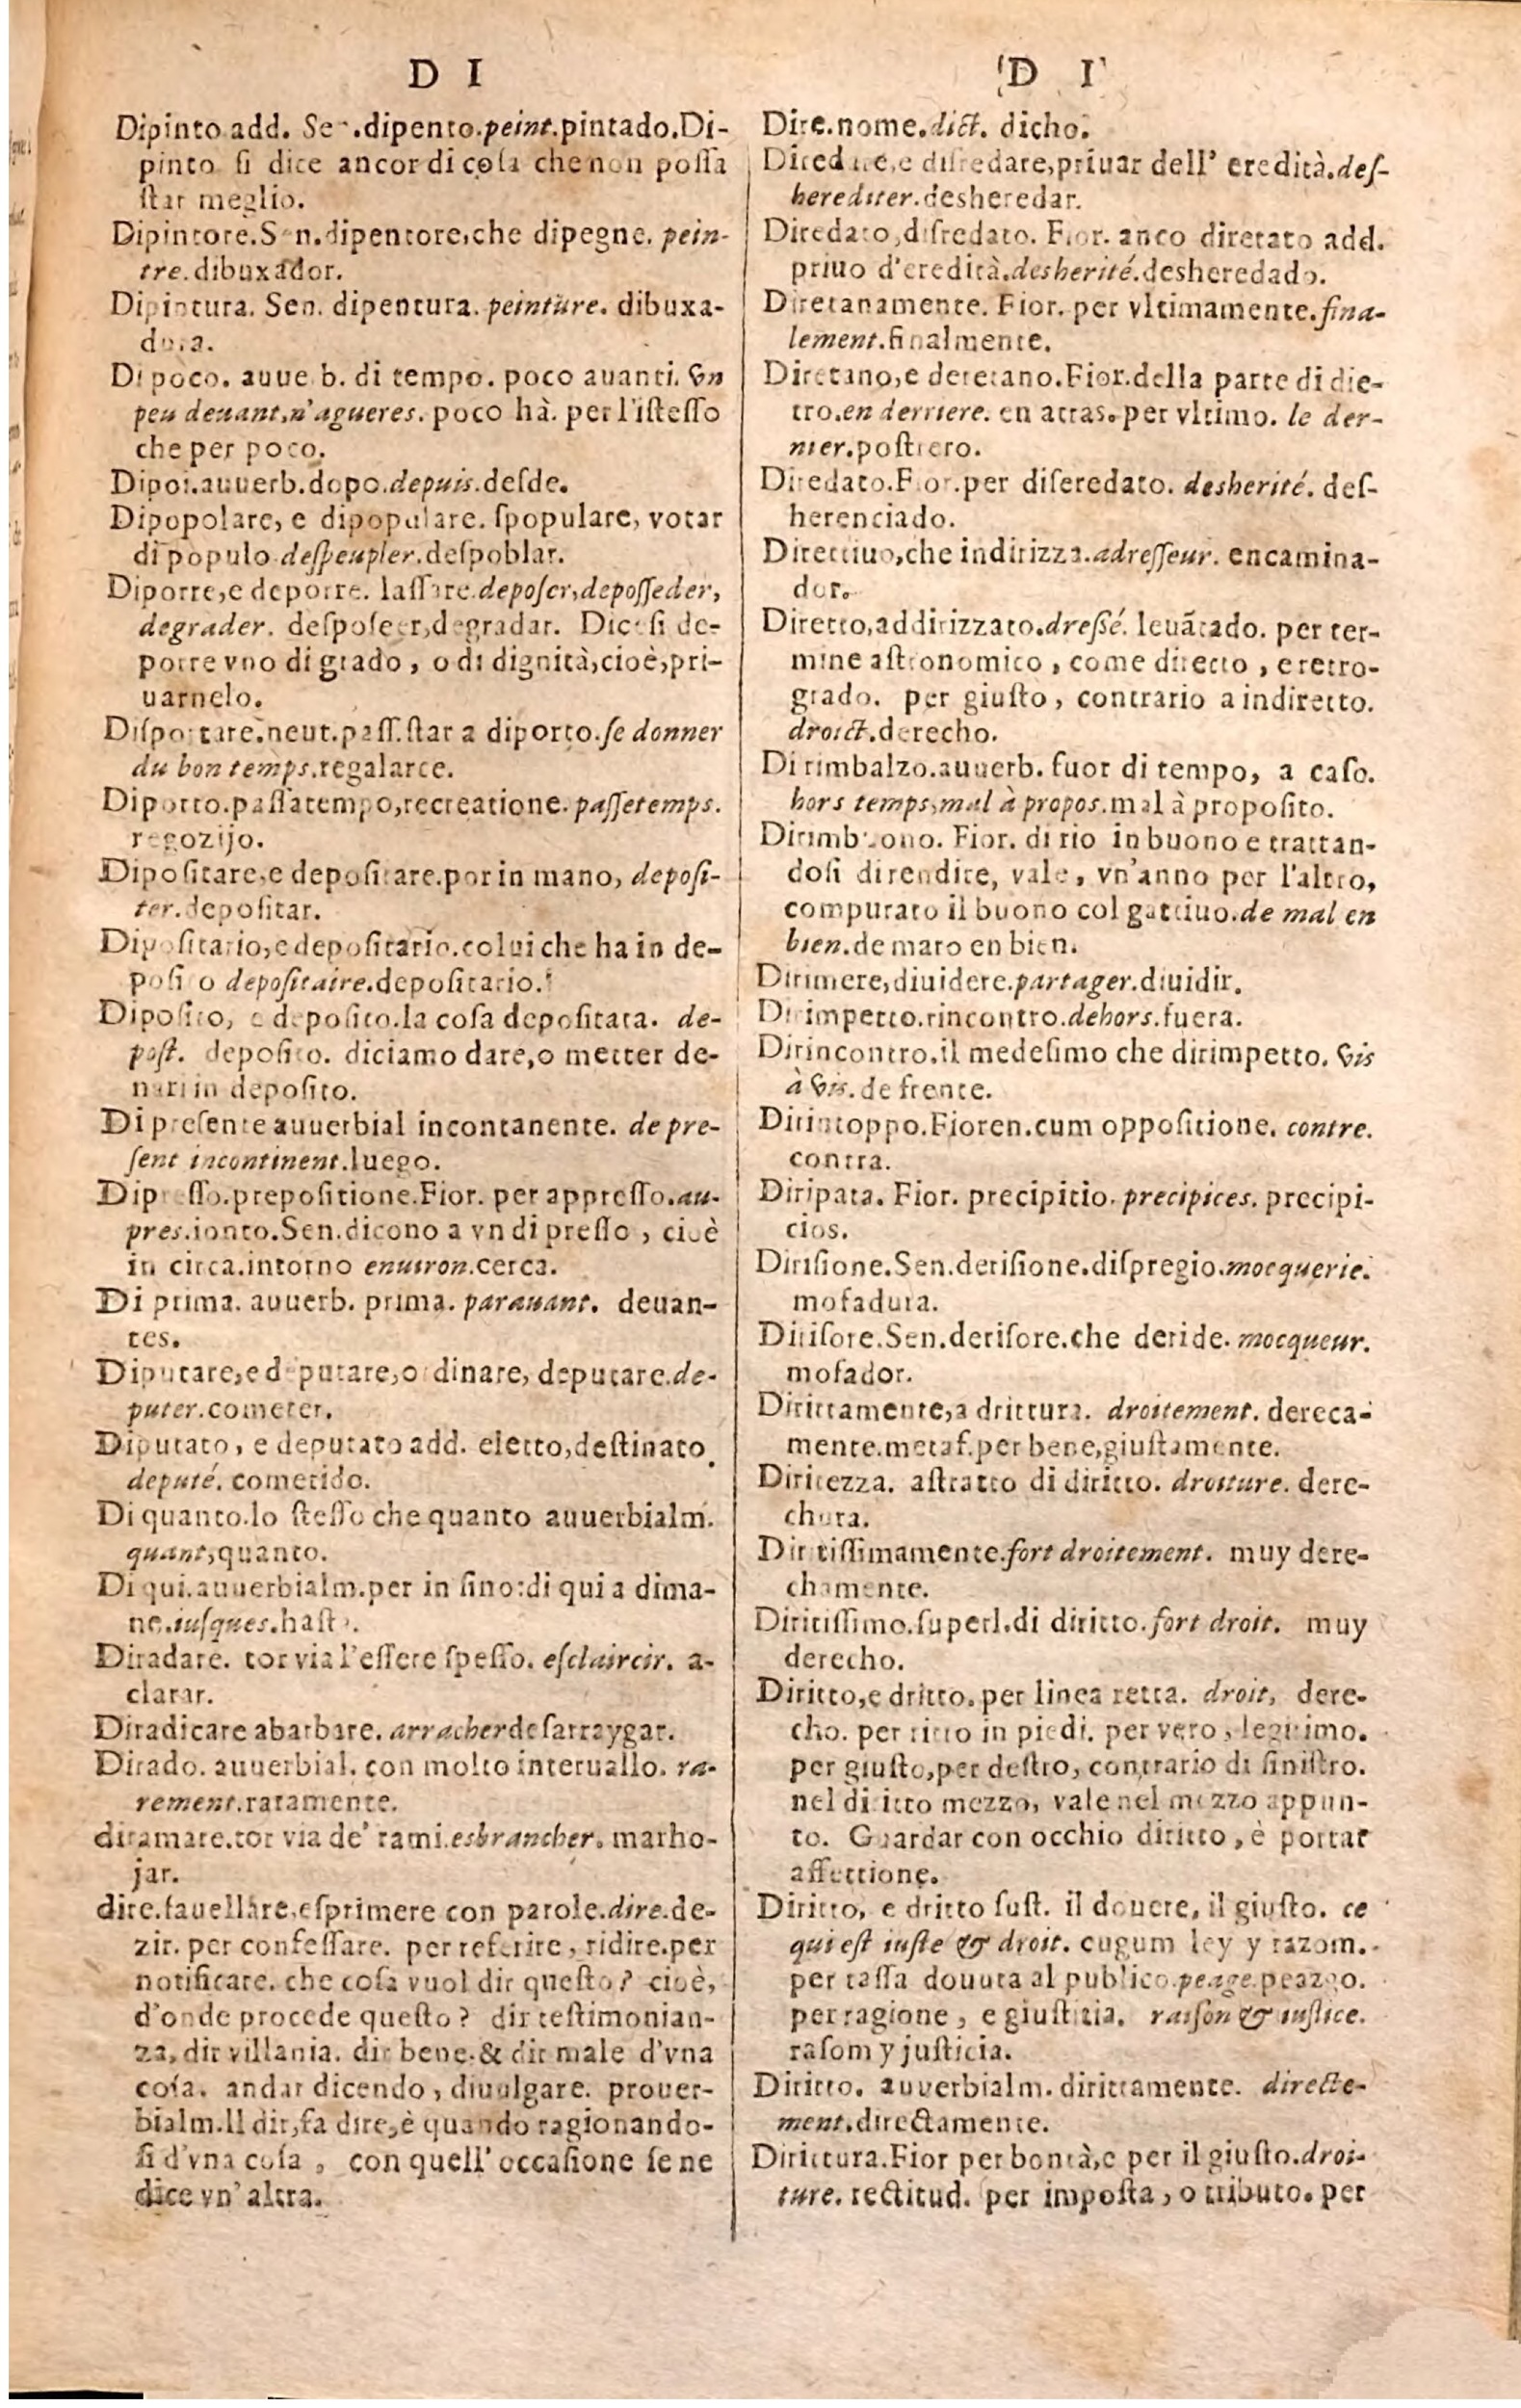 D I
Dipinto add. Sen.dipento.peint.pintado.Di-
pinto si dice ancor di cosa che non possa
star meglio.
Dipintore.Sen.dipentore,che dipegne. pein-
tre.dibuxador.
Dipintura. Sen. dipentura. peinture. dibuxa-
dura.
Di poco. auuerb. di tempo. poco auanti. vn
peu deuant,n'agueres. poco hà. per l'istesso
che per poco.
Dipoi.auuerb.dopo.depuis.desde.
Dipopolare, e dipopulare. spopulare, votar
di populo despeupler.despoblar.
Diporre,e deporre. lassare.deposer,deposseder,
degrader. desposeer,degradar. Dicesi de-
porre vno di grado , o di dignità,cioè,pri-
uarnelo.
Disportare.neut.pass.star a diporto.se donner
du bon temps.regalarce.
Diporto.passatempo,recreatione.passetemps.
regozijo.
Dipositare,e depositare.por in mano, deposi-
ter.depositar.
Dipositario,e depositario.colui che ha in de-
posito depositaire.depositario.
Diposito, e deposito.la cosa depositata. de-
post. deposito. diciamo dare,o metter de-
nari in deposito.
Di presente auuerbial incontanente. de pre-
sent incontinent.luego.
Dipresso.prepositione.Fior. per appresso.au-
pres.ionto.Sen.dicono a vn di presso , cioè
in circa.intorno enuiron.cerca.
Di prima. auuerb. prima. parauant. deuan-
tes.
Diputare,e deputare,ordinare, deputare.de-
puter.cometer.
Diputato, e deputato add. eletto,destinato.
deputé. cometido.
Di quanto.lo stesso che quanto auuerbialm.
quant,quanto.
Di qui.auuerbialm.per in sino:di qui a dima-
ne.iusques.hasta.
Diradare. tor via l'essere spesso. esclaircir. a-
clarar.
Diradicare abarbare. arracher desarraygar.
Dirado. auuerbial. con molto interuallo. ra-
rement.raramente.
diramare.tor via de' rami.esbrancher. marho-
jar.
dire.fauellare,esprimere con parole.dire.de-
zir. per confessare. per referire, ridire.per
notificare. che cosa vuol dir questo? cioè,
d'onde procede questo? dir testimonian-
za, dir villania. dir bene.& dir male d'vna
cosa. andar dicendo , diuulgare. prouer-
bialm.Il dir,fa dire,è quando ragionando-
si d'vna cosa , con quell' occasione se ne
dice vn' altra.
D I
Dire.nome.dict. dicho.
Diredare,e disredare,priuar dell' eredità.des-
herediter.desheredar.
Diredato,disredato. Fior. anco diretato add.
priuo d'eredità.desherité.desheredado.
Diretanamente. Fior. per vltimamente.fina-
lement.finalmente.
Diretano,e deretano.Fior.della parte di die-
tro.en derriere. en atras.per vltimo. le der-
nier.postrero.
Diredato.Fior.per diseredato. desherité. des-
herenciado.
Direttiuo,che indirizza.adresseur. encamina-
dor.
Diretto,addirizzato.dressé. leuãtado. per ter-
mine astronomico , come diretto , e retro-
grado. per giusto, contrario a indiretto.
droict.derecho.
Di rimbalzo.auuerb. fuor di tempo, a caso.
hors temps,mal à propos.mal à proposito.
Dirimbuono. Fior. di rio in buono e trattan-
dosi di rendite, vale, vn'anno per l'altro,
compurato il buono col gattiuo.de mal en
bien.de maro en bien.
Dirimere,diuidere.partager.diuidir.
Dirimpetto.rincontro.dehors.fuera.
Dirincontro.il medesimo che dirimpetto. vis
à vis. de frente.
Dirintoppo.Fioren.cum oppositione. contre.
contra.
Diripata. Fior. precipitio. precipices. precipi-
cios.
Dirisione.Sen.derisione.dispregio.mocquerie.
mofadura.
Dirisore.Sen.derisore.che deride. mocqueur.
mofador.
Dirittamente,a drittura. droitement. dereca-
mente.metaf.per bene,giustamente.
Diritezza. astratto di diritto. droiture. dere-
chura.
Dirittissimamente.fort droitement. muy dere-
chamente.
Diritissimo.superl.di diritto.fort droit. muy
derecho.
Diritto,e dritto.per linea retta. droit, dere-
cho. per ritto in piedi. per vero, legitimo.
per giusto,per destro, contrario di sinistro.
nel diritto mezzo, vale nel mezzo appun-
to. Guardar con occhio diritto , è portar
affettione.
Diritto, e dritto sust. il douere, il giusto. ce
qui est iuste & droit. cugum ley y razom.
per tassa douuta al publico.peage.peazgo.
per ragione , e giustitia. raison & iustice.
rasom y justicia.
Diritto. auuerbialm. dirittamente. directe-
ment.directamente.
Dirittura.Fior per bontà,e per il giusto.droi-
ture. rectitud. per imposta , o tributo. per